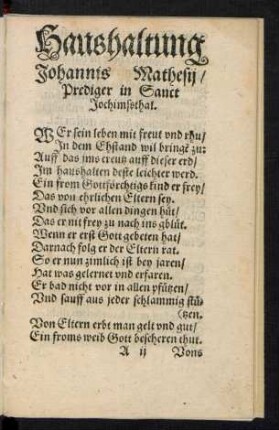 Haushaltung
Johannis Mathesij/
Prediger in Sanct
Jochimsthal.
WEr sein leben mit freut vnd rhu/
In dem Ehstand wil bringē zu:
Auff das jms creutz auff dieser erd/
Im haushalten deste leichter werd.
Ein from Gottsörchtigs kind er frey/
Das von ehrlichen Eltern sey.
Vnd sich vor allen dingen hüt/
Das er nit frey zu nach ins gblüt.
Wenn er erst Gott gebeten hat/
Darnach folg er der Eltern rat.
So er nun zimlich ist bey jaren/
Hat was gelernet vnd erfaren.
Er bad nicht vor in allen pfützen/
Vnd sauff aus jeder schlammig stü-
(tzen.
Von Eltern erbt man gelt vnd gut/
Ein froms weib Gott bescheren thut.
A ij Vons